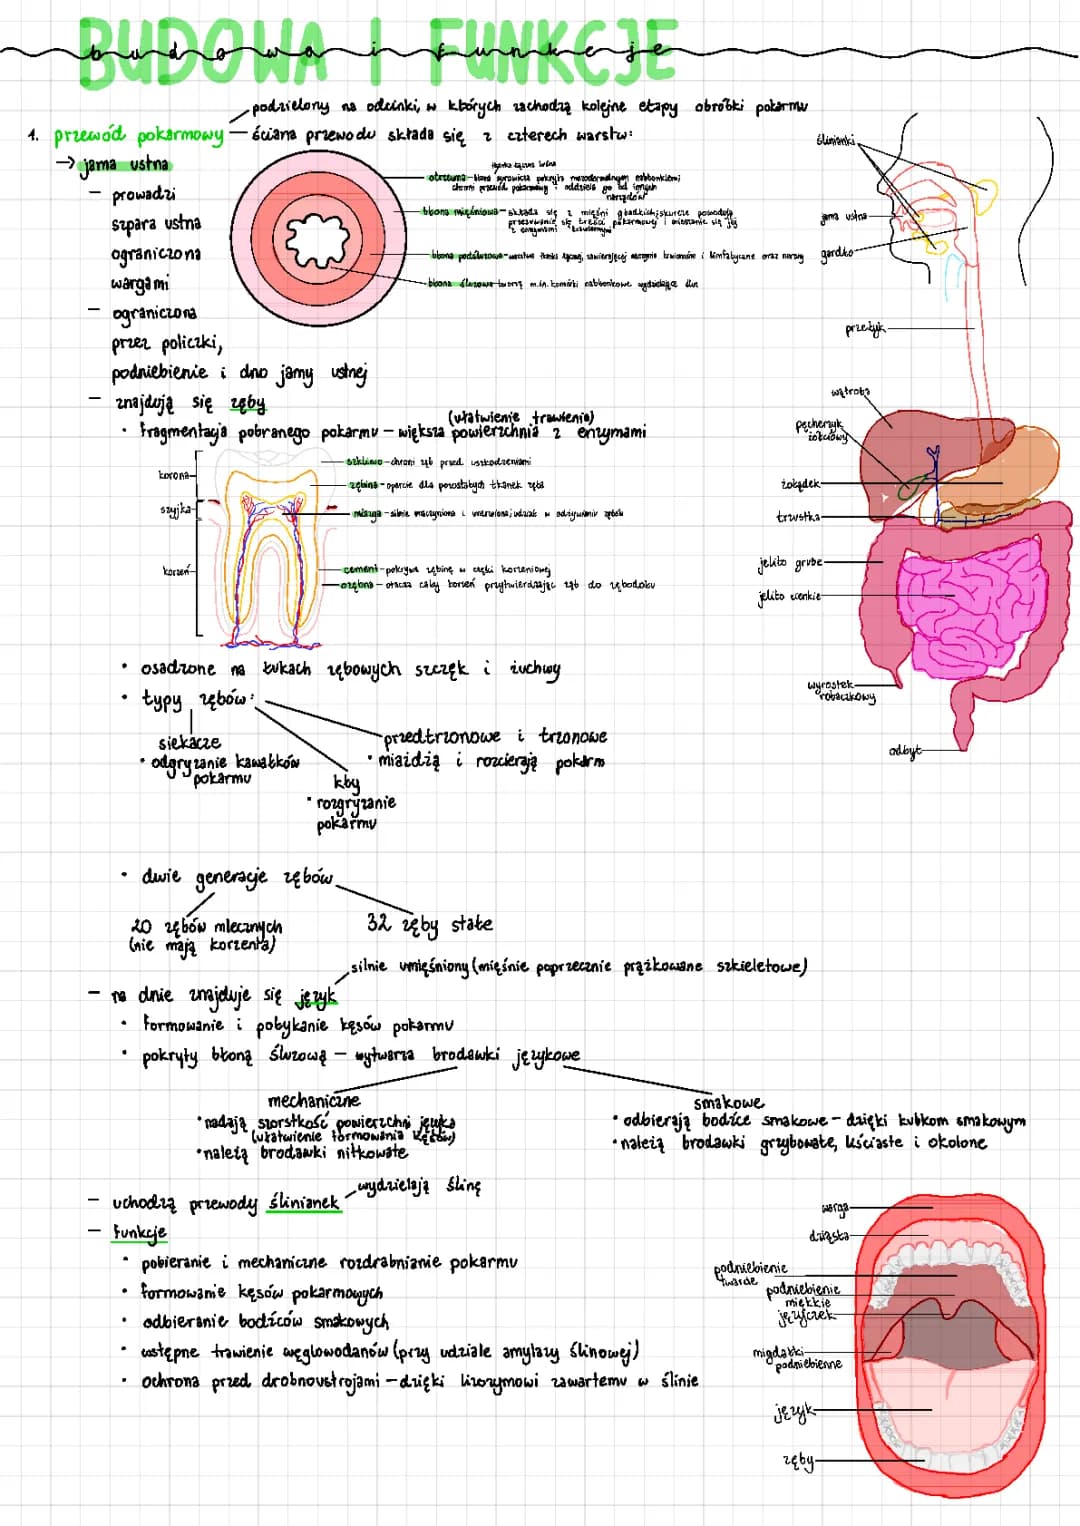 BUDOWA I FUNKCJE
budowa i funkcje
podzielony na odcinki, w których zachodzą kolejne etapy obróbki pokarmu
1. przewód pokarmowy – ściana przewodu składa się z czterech warstw:
→ jama ustna
- prowadzi
szpara ustna
ograniczona
wargami
- ograniczona
przez policzki,
podniebienie i dno jamy ustnej
tkanka łączna luźna
otrzewna - błona surowicza pokryta mezodermalnym nabłonkiem;
chroni przewód pokarmowy i oddziela go od innych
narządów
błona mięśniowa - składa się z mięśni gładkich; skurcze powodują
przesuwanie się treści pokarmowej i mieszanie się jej
z enzymami trawiennymi
błona podśluzowa - warstwa tkanki łącznej, zawierającej naczynia krwionośne i limfatyczne oraz nerwy
błona śluzowa - tworzą m.in. komórki nabłonkowe wydzielające śluz
ślinianki
jama ustna
gardło
przełyk
wątroba
pęcherzyk
żółciowy
żołądek
trzustka
jelito grube
jelito cienkie
wyrostek
robaczkowy
odbyt
- znajdują się zęby
(ułatwienie trawienia)
• fragmentacja pobranego pokarmu – większa powierzchnia z enzymami
korona
szyjka
korzeń
szkliwo - chroni ząb przed uszkodzeniami
zębina - oparcie dla pozostałych tkanek zęba
miazga - silnie unaczyniona i unerwiona; udział w odżywianiu zębów
cement - pokrywa zębinę w części korzeniowej
ozębna - otacza cały korzeń przytwierdzając ząb do zębodołu
• osadzone na łukach zębowych szczęk i żuchwy
• typy zębów:
siekacze
• odgryzanie kawałków
pokarmu
kły
• rozgryzanie
pokarmu
przedtrzonowe i trzonowe
• miażdżą i rozcierają pokarm
• dwie generacje zębów
20 zębów mlecznych
(nie mają korzenia)
32 zęby stałe
silnie umięśniony (mięśnie poprzecznie prążkowane szkieletowe)
- na dnie znajduje się język
• formowanie i połykanie kęsów pokarmu
• pokryty błoną śluzową – wytwarza brodawki językowe
mechaniczne
• nadają szorstkość powierzchni języka
(ułatwienie formowania kęsów)
• należą brodawki nitkowate
smakowe
• odbierają bodźce smakowe – dzięki kubkom smakowym
• należą brodawki grzybowate, liściaste i okolone
wydzielają ślinę
- uchodzą przewody ślinianek
- funkcje
• pobieranie i mechaniczne rozdrabnianie pokarmu
• formowanie kęsów pokarmowych
• odbieranie bodźców smakowych
• wstępne trawienie węglowodanów (przy udziale amylazy ślinowej)
• ochrona przed drobnoustrojami – dzięki lizozymowi zawartemu w ślinie
warga
dziąsła
podniebienie
twarde
podniebienie
miękkie
języczek
migdałki
podniebienne
język
zęby